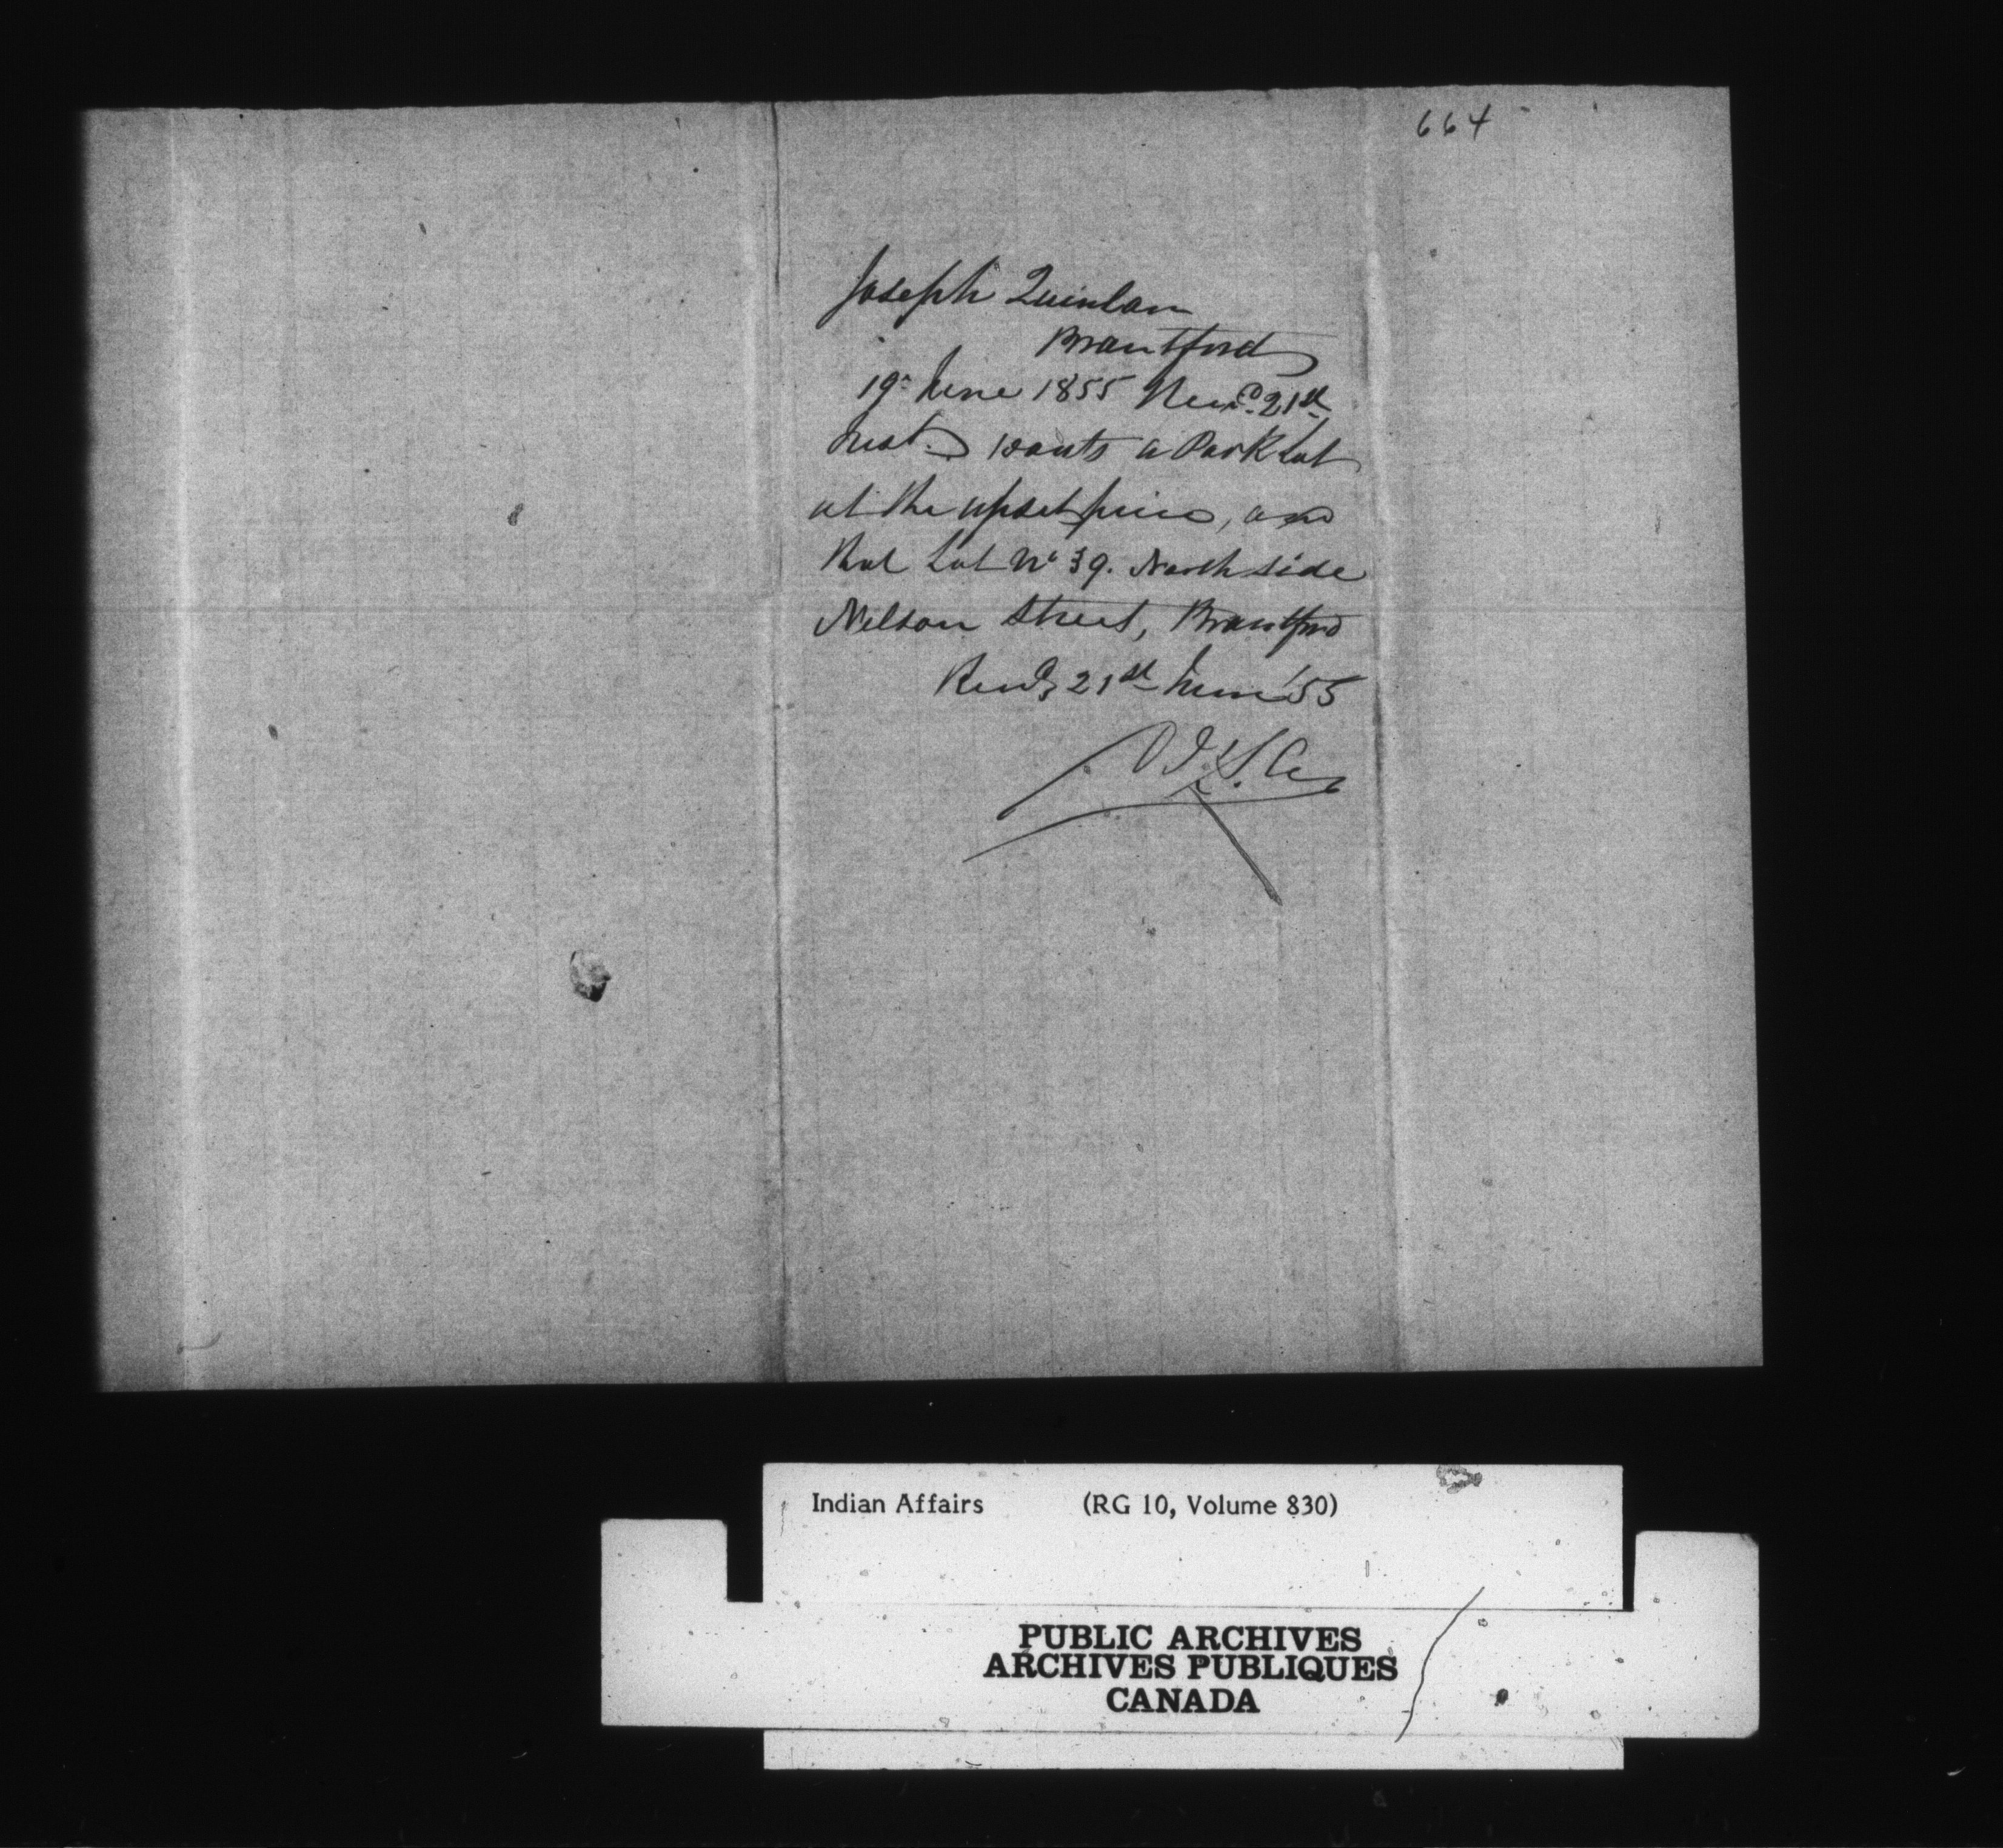 664
Joseph Quinlan
Brantford
19th June 1855 Recd. 21st
Inst. wants a Park Lot
at the upset price, and
that Lot No 39. North side
Nelson Street, Brantford
Recd, 21st June '55
Indian Affairs (RG 10, Volume 830)
PUBLIC ARCHIVES
ARCHIVES PUBLIQUES
CANADA